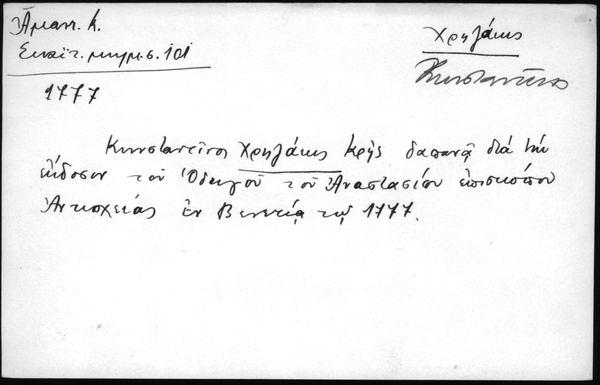 Ἄμαντ. Κ.
Σιναϊτ. μνημ. σ. 101
1777
Χρηζάκης
Κωνσταντῖνος
Κωνσταντῖνος Χρηζάκης Κρής δαπανᾷ διά τήν
ἔκδοσιν τοῦ Ὁδηγοῦ τοῦ Ἀναστασίου ἐπισκόπου
Ἀντιοχείας ἐν Βενετίᾳ τῷ 1777.